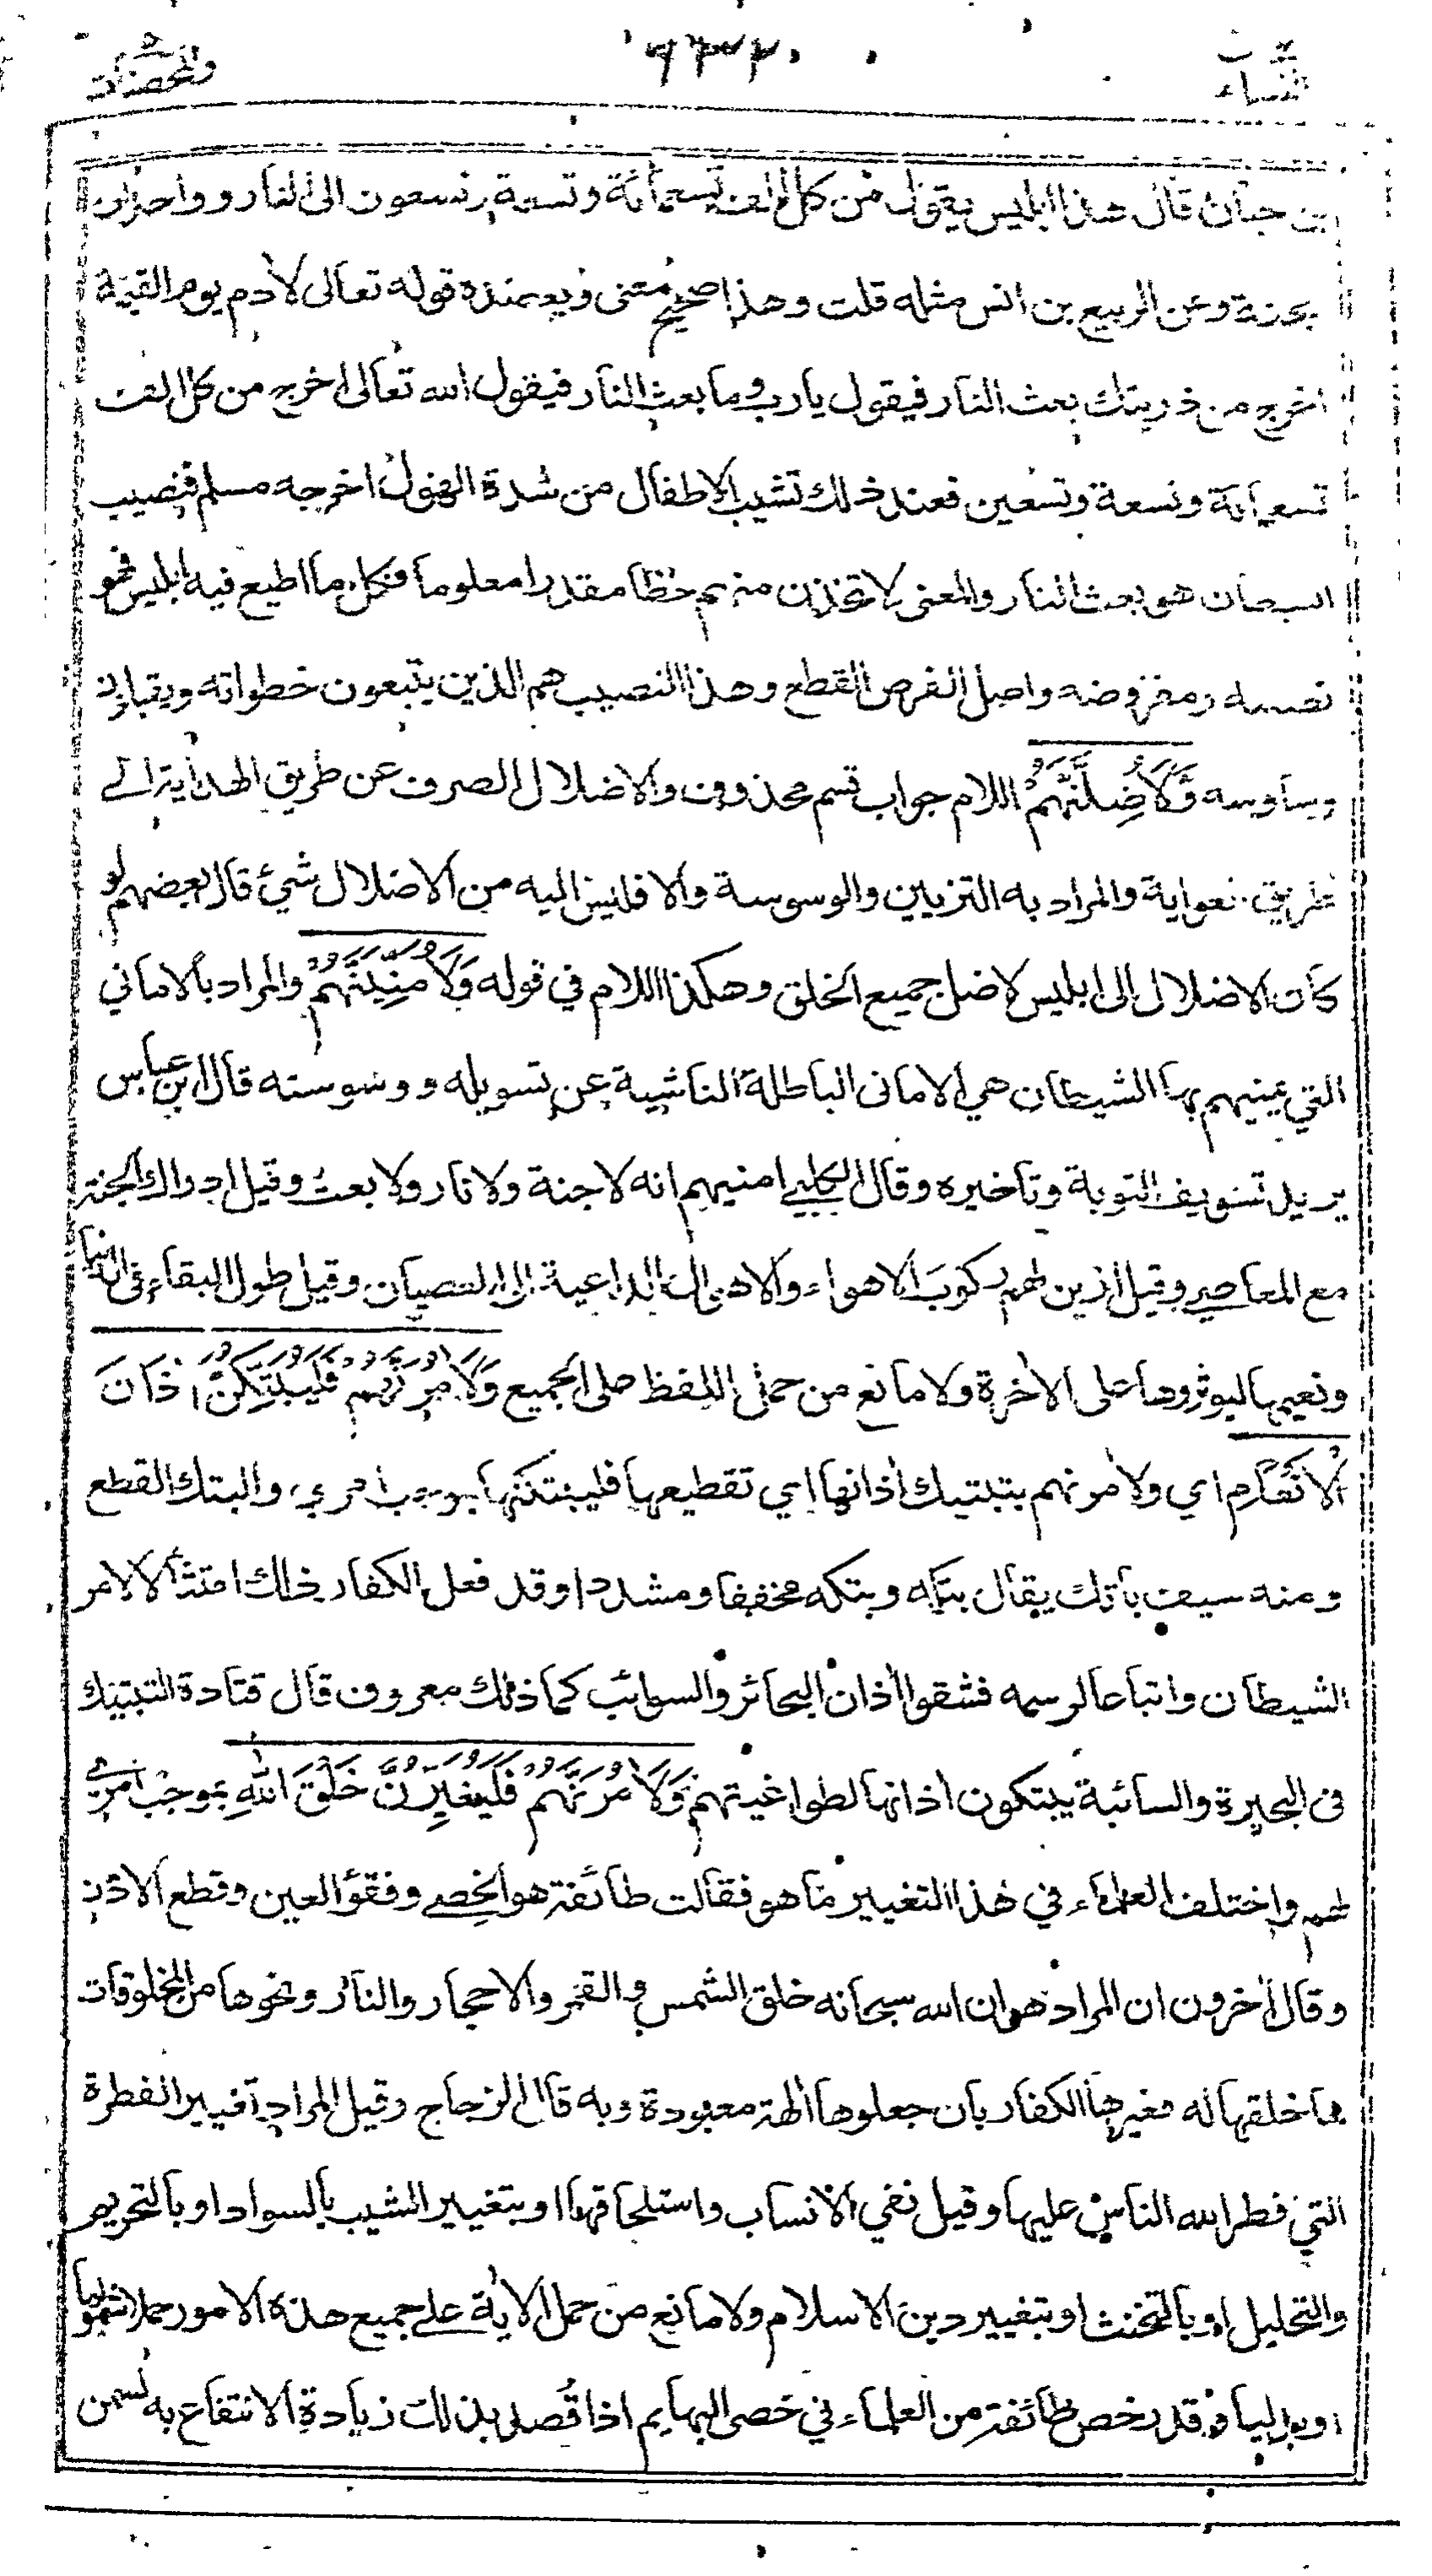 النساء
والمحصنات
بن حبان قال هذا ابليس يقول من كل الف تسعمائة وتسعة وتسعون الى النار وواحد الى
الجنة وعن الربيع بن انس مثله قلت وهذا صحيح معنى ويعضده قوله تعالى لأدم يوم القيمة
اخرج من ذريتك بعث النار فيقول يا رب وما بعث النار فيقول الله تعالى اخرج من كل الف
تسعمائة وتسعة وتسعين فعند ذلك تشيب الاطفال من شدة الهول اخرجه مسلم فنصيب
الشيطان هو بعث النار والمعنى لاتخذن منهم حظا مقدرا معلوما فكل ما اطيع فيه ابليس فهو
نصيبه ومفروضه واصل الفرض القطع وهذا النصيب هم الذين يتبعون خطواته ويقبلون
وساوسه وَّلَاُضِلَّنَّهُمْ اللام جواب قسم محذوف والاضلال الصرف عن طريق الهداية الے
طريق الغواية والمراد به التزيين والوسوسة والا فليس اليه من الاضلال شيئ قال بعضهم لو
كان الاضلال الى ابليس لاضل جميع الخلق وهكذا اللام في قوله وَلَاُمَنِّيَنَّهُمْ والمراد بالاماني
التي يمنيهم بها الشيطان هي الامانى الباطلة الناشية عن تسويله ووسوسته قال ابن عباس
يريد تسويف التوبة وتاخيره وقال الكلبي امنيهم انه لا جنة ولا نار ولا بعث وقيل ادراك الجنة
مع المعاصي وقيل ازين لهم ركوب الاهواء والاهوال الداعية الى العصيان وقيل طول البقاء فى الدنيا
ونعيمها ليوثروها على الأخرة ولا مانع من حمل اللفظ على الجميع وَلَاٰمُرَنَّهُمْ فَلَيُبَتِّكُنَّ اٰذَانَ
الْاَنْعَامِ اي ولأمرنهم بتبتيك أذانها اي تقطيعها فليبتكنها بموجب امري والبتك القطع
ومنه سيف باتك يقال بتكه وبتكه مخففا ومشددا وقد فعل الكفار ذلك امتثالا لامر
الشيطان واتباعا لرسمه فشقوا أذان البحائر والسوائب كما ذلك معروف قال قتادة التبتيك
فى البحيرة والسائبة يبتكون أذانها لطواغيتهم وَلَاٰمُرَنَّهُمْ فَلَيُغَيِّرُنَّ خَلْقَ اللّٰهِ بموجب امري
لهم واختلف العلماء في هذا التغيير ما هو فقالت طائفة هو الخصے وفقؤ العين وقطع الأذن
وقال أخرون ان المراد هو ان الله سبحانه خلق الشمس والقمر والاحجار والنار ونحوها من المخلوقات
لما خلقها له فغيرها الكفار بان جعلوها ألهة معبودة وبه قال الزجاج وقيل المراد تغيير الفطرة
التي فطر الله الناس عليها وقيل نفي الانساب واستلحاقها او بتغيير الشيب بالسواد او بالتحريم
والتحليل او بالتخنث او بتغيير دين الاسلام ولا مانع من حمل الأية علے جميع هذه الامور حملا شموليا
او بدليا وقد رخص طائفة من العلماء في خصى البهايم اذا قصد بذلك زيادة الانتفاع به لسمن